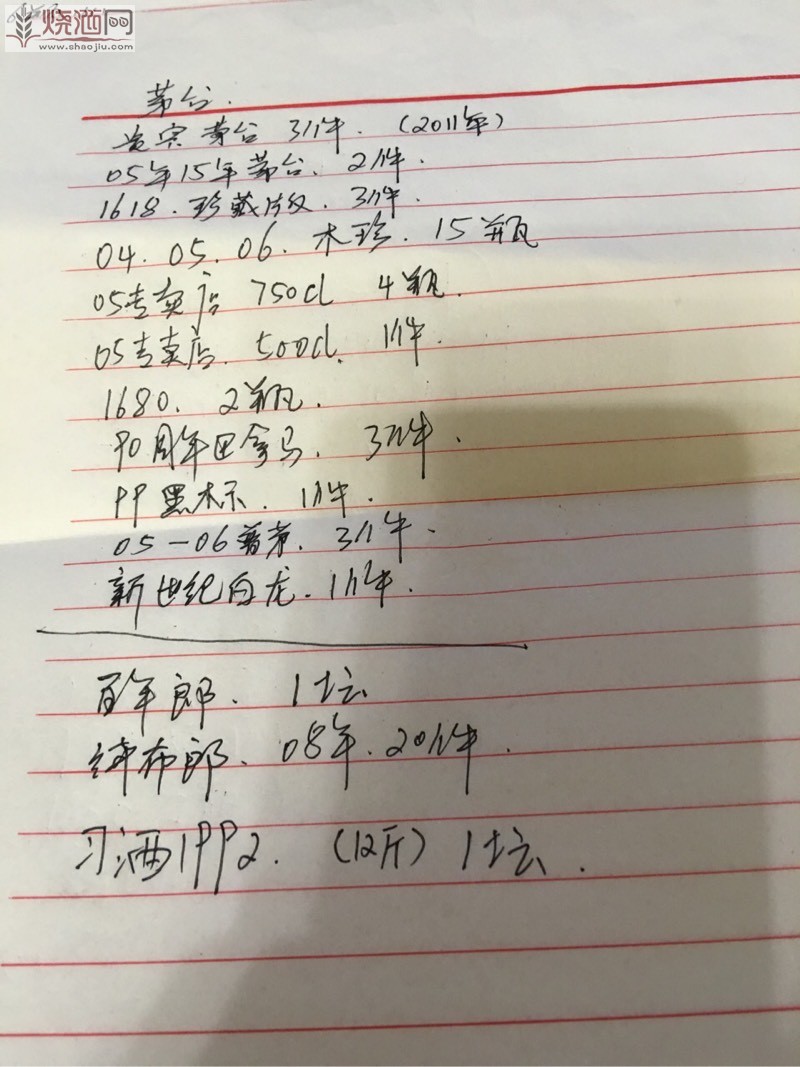 烧酒网
www.shaojiu.com
茅台.
贵宾茅台 3件. (2011年)
05年15年茅台. 2件.
1618. 珍藏版. 3件.
04. 05. 06. 木珍. 15瓶
05专卖店 750cl 4瓶.
05专卖店. 500cl. 1件.
1680. 2瓶.
90周年巴拿马. 3件.
99黑标. 1件.
05-06普茅. 3件.
新世纪白龙. 1件.
百年郎. 1坛
绵布郎. 08年. 20件.
习酒1992. (12斤) 1坛.